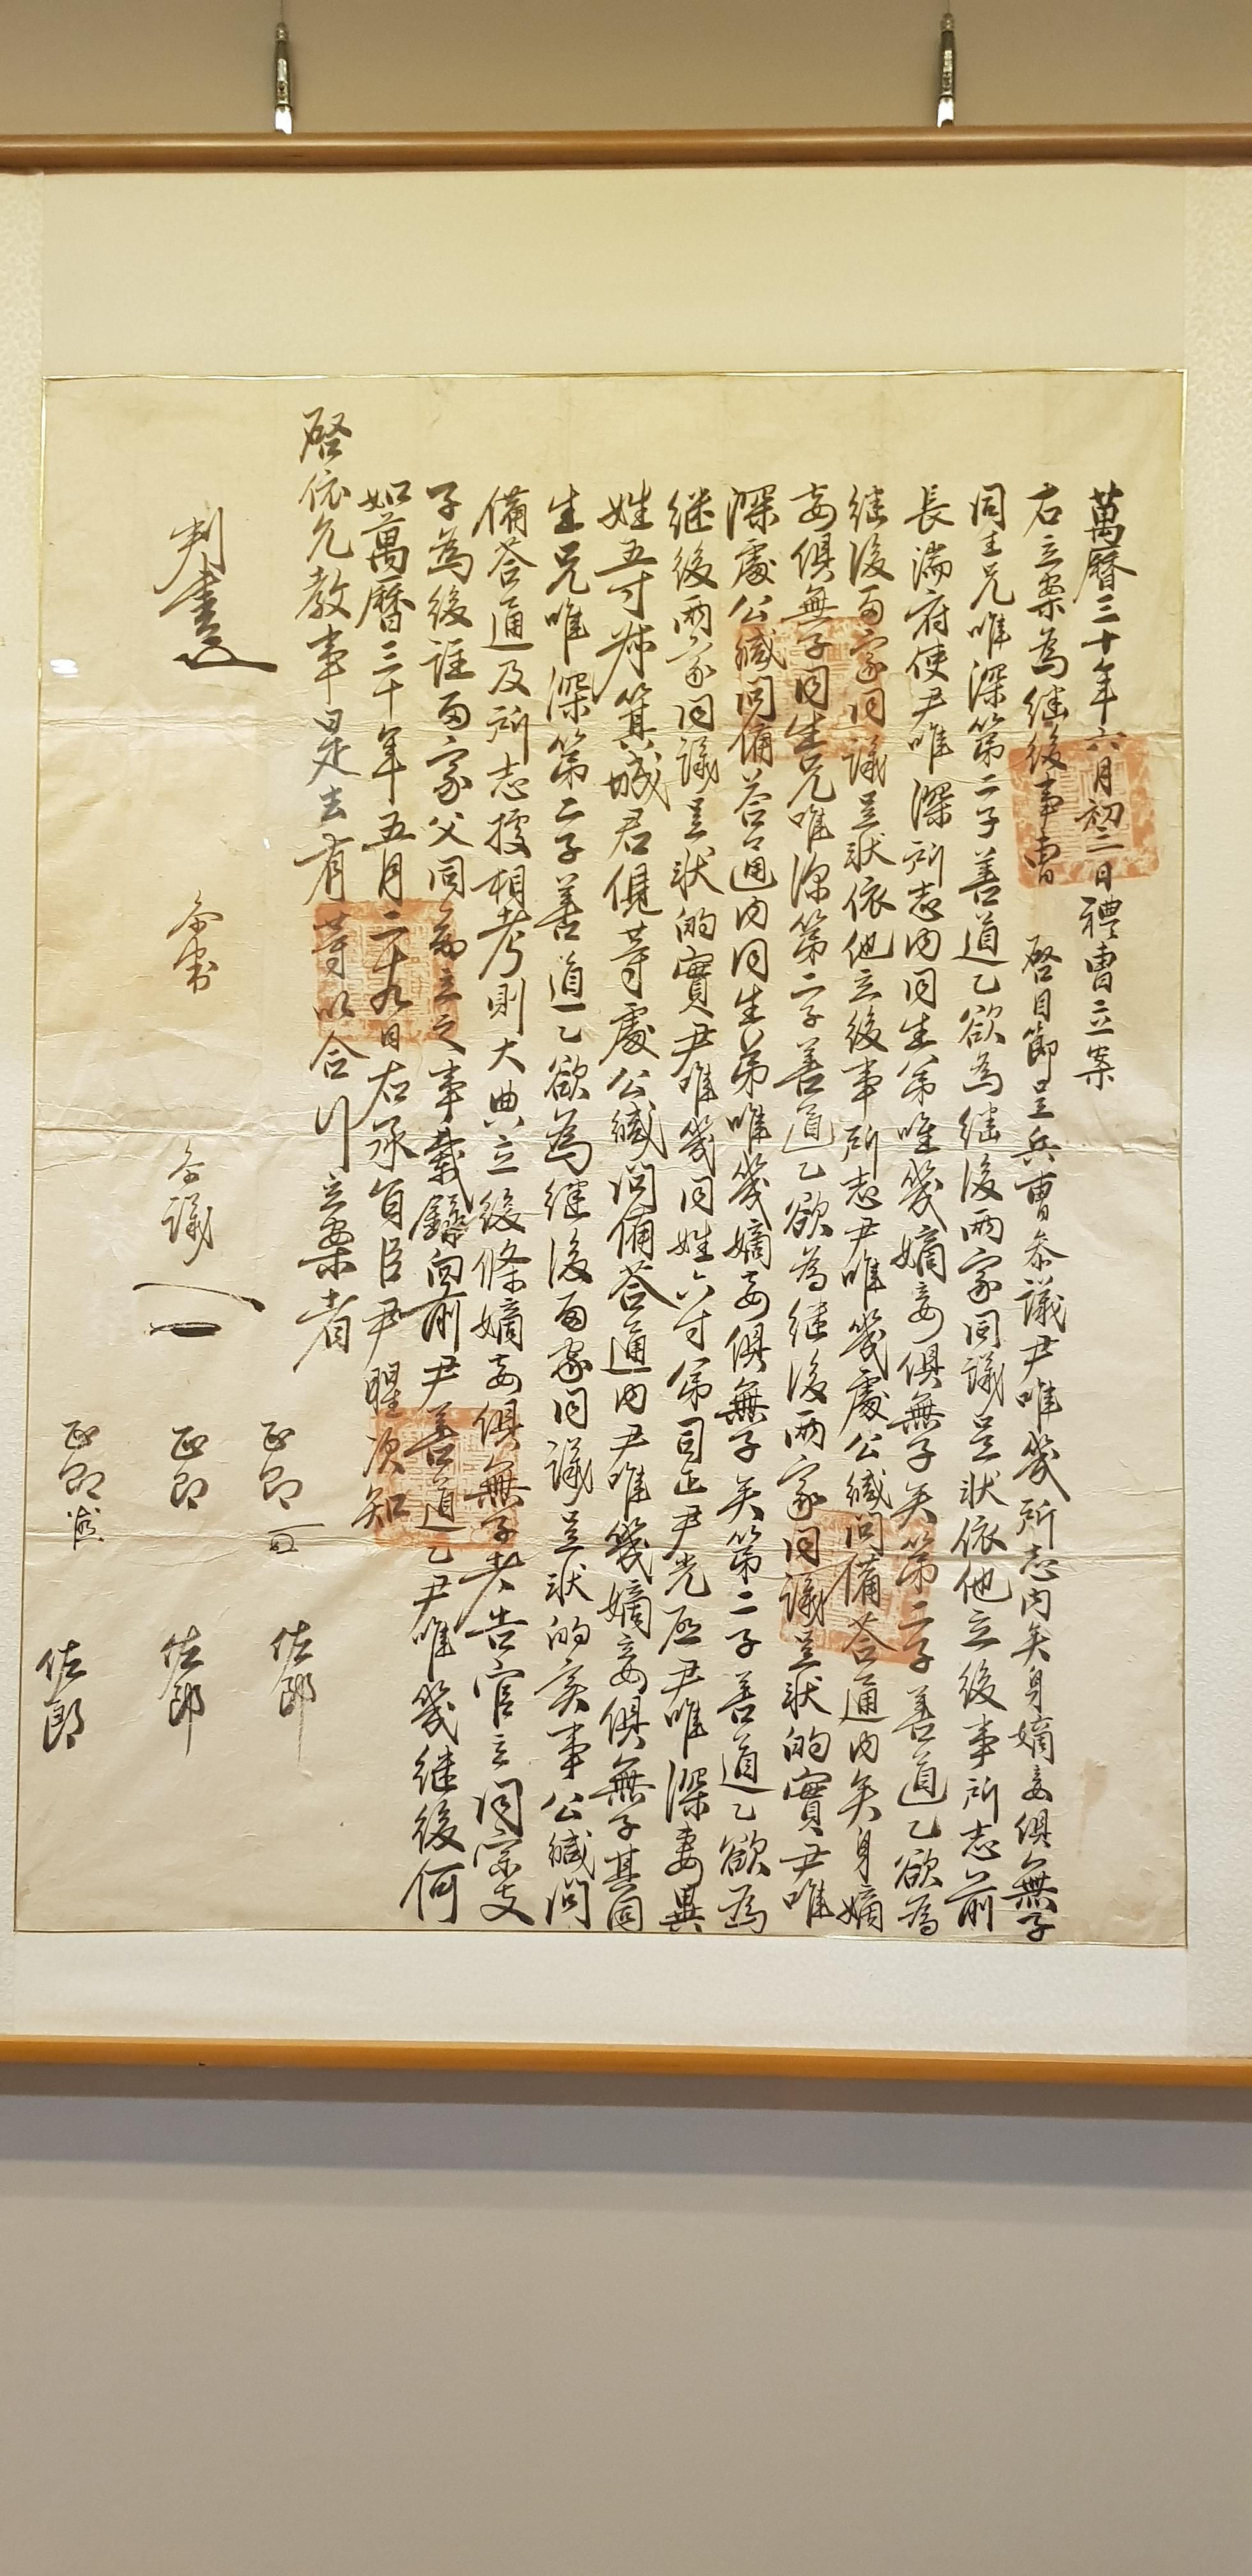 萬曆三十年六月初二日禮曹立案
右立案爲繼後事曹 啓目節呈兵曹參議尹唯幾所志內矣身嫡妾俱無子
同生兄唯深第二子善道乙欲爲繼後兩家同議呈狀依他立後事所志前
長湍府使尹唯深所志內同生弟唯幾嫡妾俱無子矣第二子善道乙欲爲
継後両家同議呈狀依他立後事所志尹唯幾處公緘問備答通內矣身嫡
妾俱無子同生兄唯深第二子善道乙欲爲継後兩家同議呈狀的實尹唯
深處公緘問備答通內同生弟唯幾嫡妾俱無子矣第二子善道乙欲爲
継後兩家同議呈狀的實尹唯幾同姓六寸弟司正尹光啓尹唯深妻異
姓五寸叔箕城君俔等處公緘問備答通內尹唯幾嫡妾俱無子其同
生兄唯深第二子善道乙欲爲継後両家同議呈狀的實事公緘問
備答通及所志據相考則大典立後條嫡妾俱無子者告官立同宗支
子爲後註両家父同命立之事載錄向前尹善道乙尹唯幾継後何
如萬曆三十年五月二十九日右承旨臣尹暒次知
啓依允教事是去有等以合行立案者
判書
參判
參議
正郎 佐郎
正郎 佐郎
正郎 佐郎